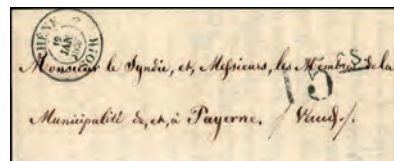 GENÈVE
19
JAN
Monsieur le Syndic, et, Messieurs, les Membres de la
Municipalité de, et, à Payerne. / Vaud /.
15 CS